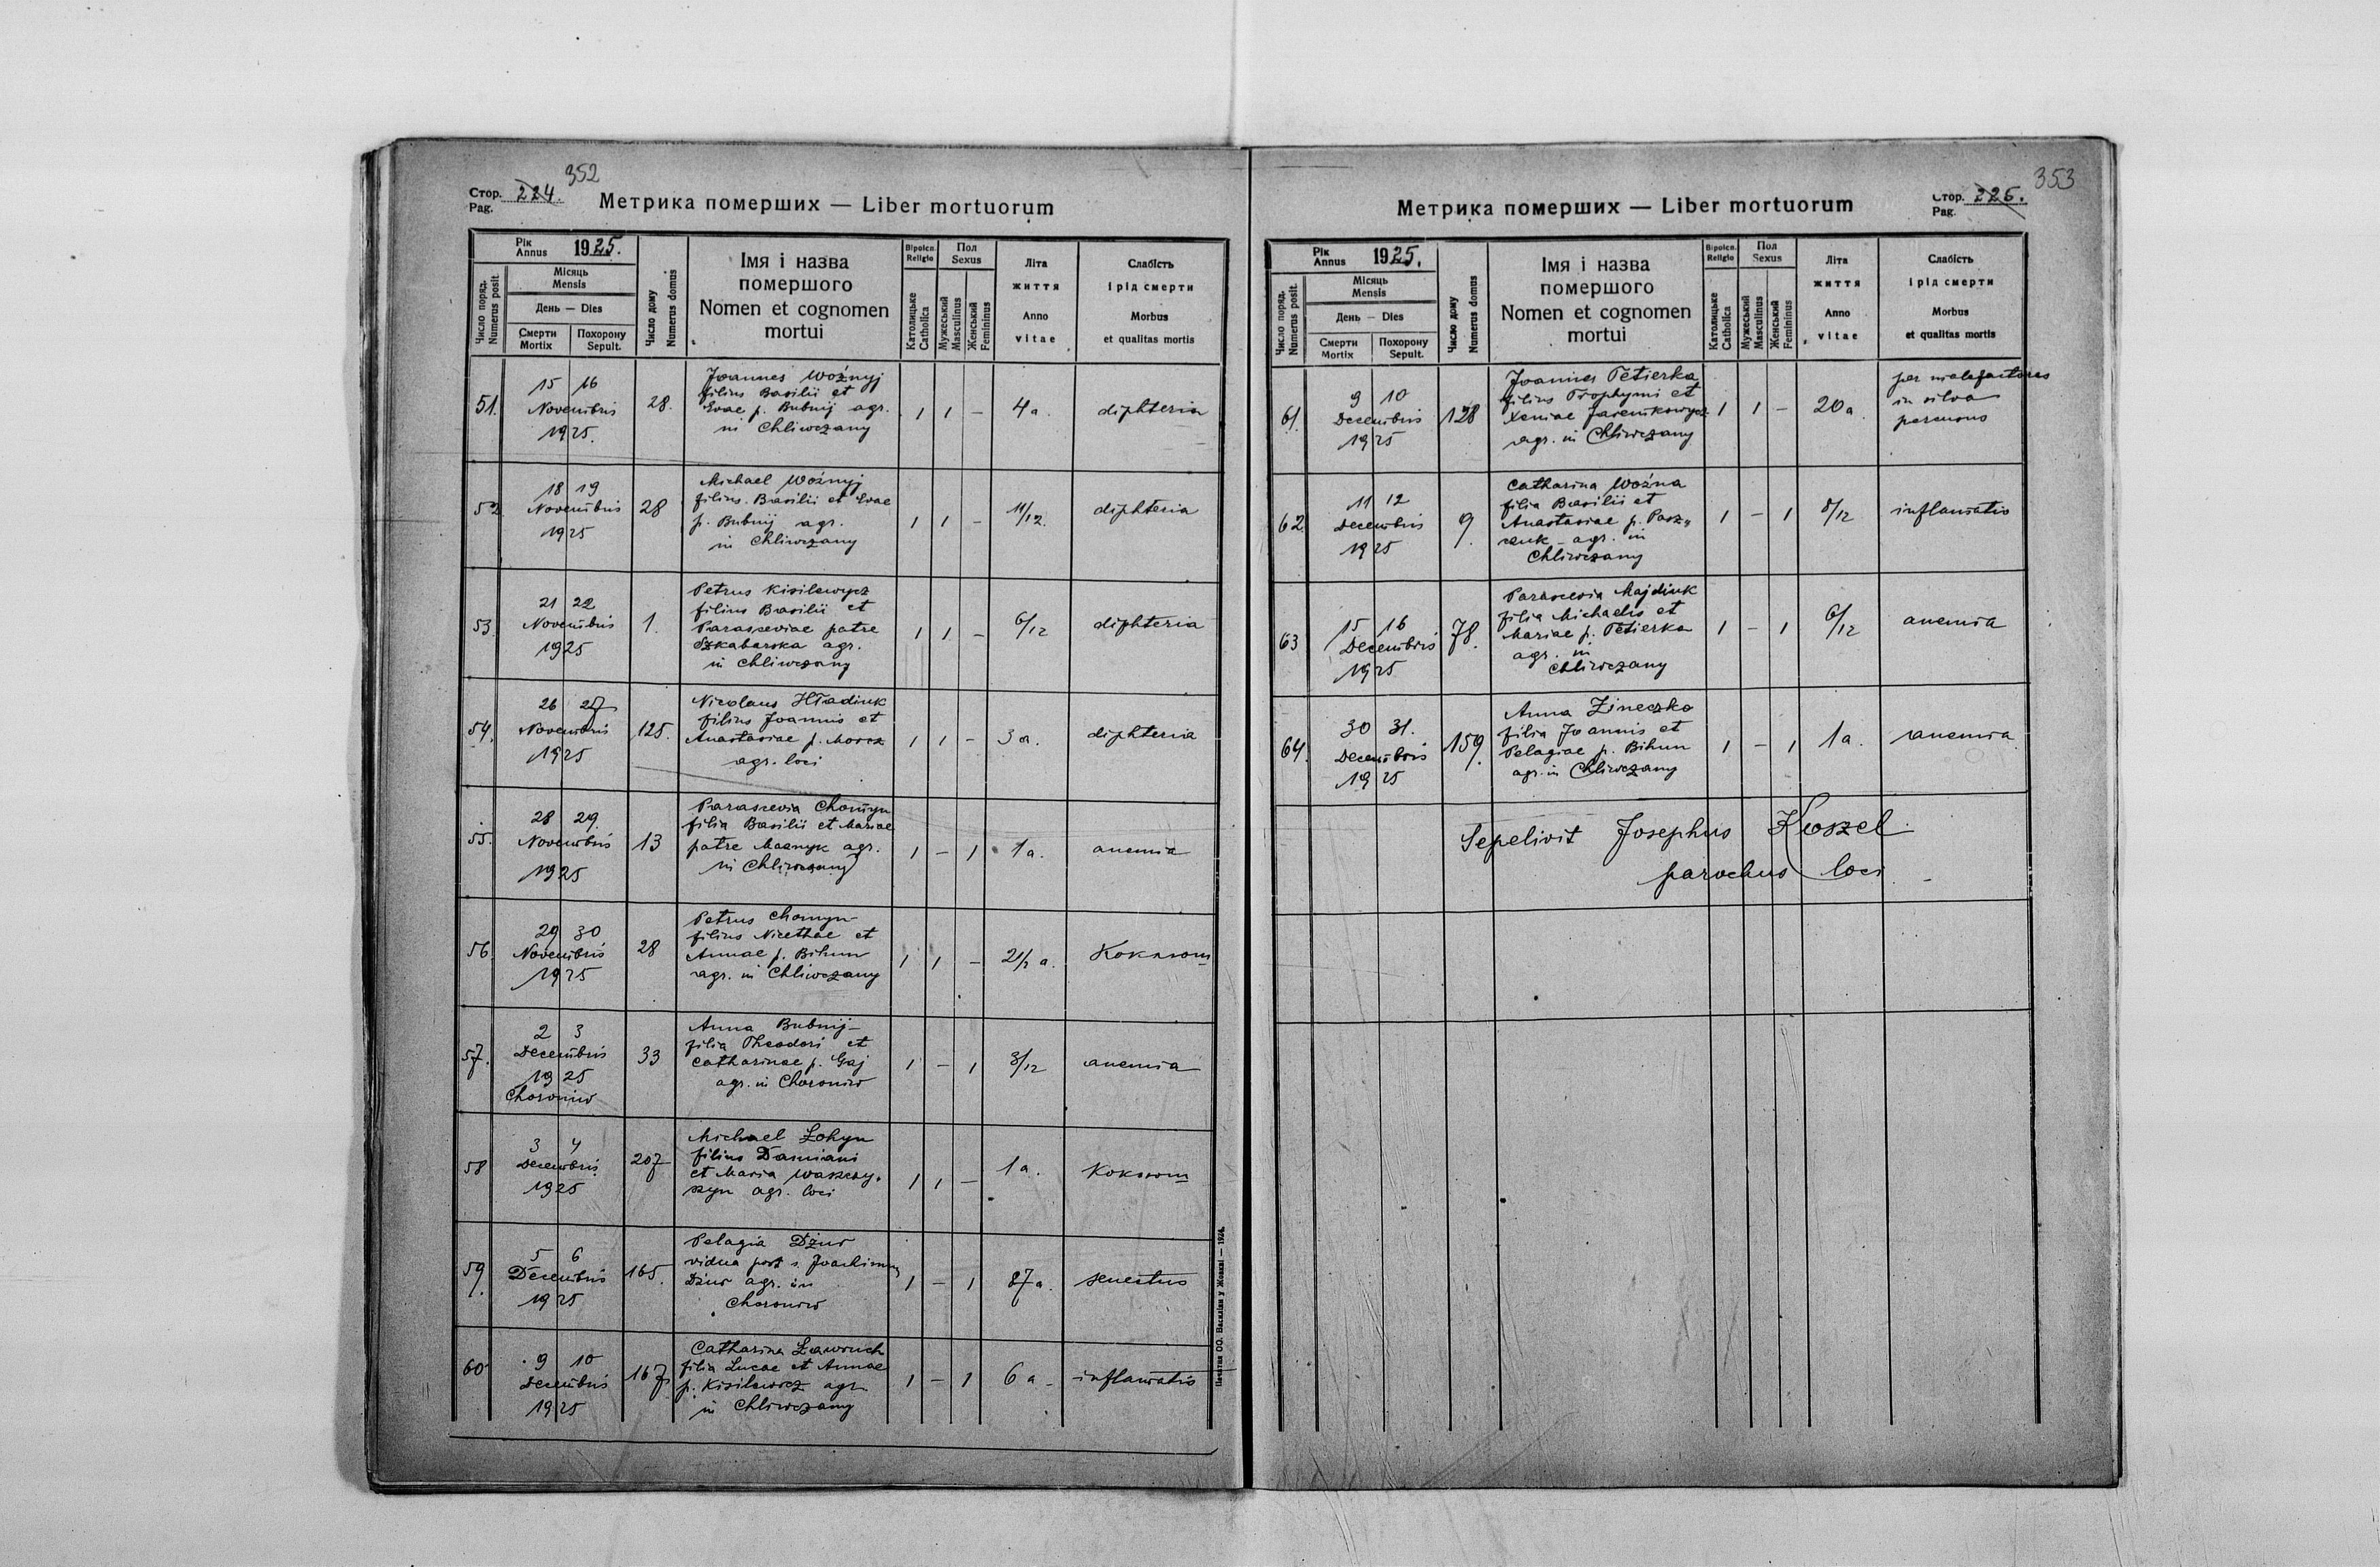 352
Стор. 224.
Pag.
Метрика померших — Liber mortuorum
Рік
Annus 1925.
Число поряд.
Numerus posit.
Місяць
Mensis
День — Dies
Смерти
Mortix
Похорону
Sepult.
Число дому
Numerus domus
Імя і назва
помершого
Nomen et cognomen
mortui
Віроісп.
Religio
Католицьке
Catholica
Пол
Sexus
Мужеський
Masculinus
Женський
Femininus
Літа
життя
Anno
vitae
Слабість
і рід смерти
Morbus
et qualitas mortis
51. 15 16
Novembris
1925.
28.
Joannes Woźnyj
filius Basilii et
Evae p. Bubnij agr.
in Chliwczany
1 1 – 4 a. diphteria
52 18 19
Novembris
1925
28
Michael Woźnyj
filius Basilii et Evae
p. Bubnij agr.
in Chliwczany
1 1 – 11/12. diphteria
53. 21 22
Novembris
1925
1.
Petrus Kisilewycz
filius Basilii et
Parasceviae patre
Szkabarska agr.
in Chliwczany
1 1 – 6/12 diphteria
54. 26 27
Novembris
1925
125.
Nicolaus Hładiuk
filius Joannis et
Anastasiae p.
agr. loci
1 1 – 3 a. diphteria
55. 28 29.
Novembris
1925
13
Parascevia Chomyn
filia Basilii et Mariae
patre Masnyk agr.
in Chliwczany
1 – 1 1 a. anemia
56. 29 30
Novembris
1925
28
Petrus Chomyn
filius Nicethae et
Annae p. Bihun
agr. in Chliwczany
1 1 – 2 1/2 a. Коклюш
57. 2 3
Decembris
1925
Choroniw
33
Anna Bubnij
filia Theodori et
Catharinae p. Gaj
agr. in Choroniw
1 – 1 3/12 anemia
58 3 4
Decembris
1925
207
Michael Łohyn
filius Damiani
et Maria Waszczy-
szyn agr. loci
1 1 – 1 a. Коклюш
59. 5 6
Decembris
1925
165.
Pelagia Dżus
vidua post s. Joachimum
Dżus agr. in
Choroniw
1 – 1 87 a. senectus
60 9 10
Decembris
1925
167
Catharina Ławruch
filia Lucae et Annae
p. Kisilewicz agr.
in Chliwczany
1 – 1 6 a – inflamatio
Печатня ОО. Василіян у Жовкві — 1924.
353
Стор. 225.
Pag.
Метрика померших — Liber mortuorum
Рік
Annus 1925.
Число поряд.
Numerus posit.
Місяць
Mensis
День — Dies
Смерти
Mortix
Похорону
Sepult.
Число дому
Numerus domus
Імя і назва
помершого
Nomen et cognomen
mortui
Віроісп.
Religio
Католицьке
Catholica
Пол
Sexus
Мужеський
Masculinus
Женський
Femininus
Літа
життя
Anno
vitae
Слабість
і рід смерти
Morbus
et qualitas mortis
61. 9 10
Decembris
1925
128
Joannes Petierka
filius Trophymi et
Xeniae Jaremkowycz
agr. in Chliwczany
1 1 – 20 a.
per malefactores
in silva
percussus
62 11 12
Decembris
1925
9.
Catharina Woźna
filia Basilii et
Anastasiae p. Pasz„
czuk agr. in
Chliwczany
1 – 1 8/12 inflamatio
63 15 16
Decembris
1925
78.
Parascevia Majdiuk
filia Michaelis et
Mariae p. Petierka
agr. in
Chliwczany
1 – 1 6/12 anemia
64. 30 31.
Decembris
1925
159.
Anna Zineczko
filia Joannis et
Pelagiae p. Bihun
agr. in Chliwczany
1 – 1 1 a. anemia
Sepelivit Josephus
parochus loci